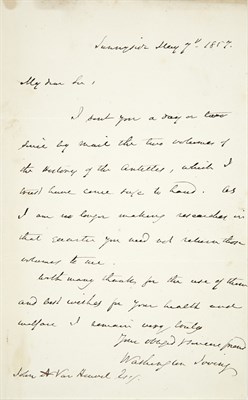 Sunnyside May 7th 1857.
My dear Sir,
I sent you a day or two
since by mail the two volumes of
the history of the Antilles, which I
trust have come safe to hand. As
I am no longer making researches in
that quarter you need not return those
volumes to me.
With many thanks for the use of them
and best wishes for your health and
welfare I remain very truly
Your obliged & sincere friend
Washington Irving
John Van Heuvel Esq.